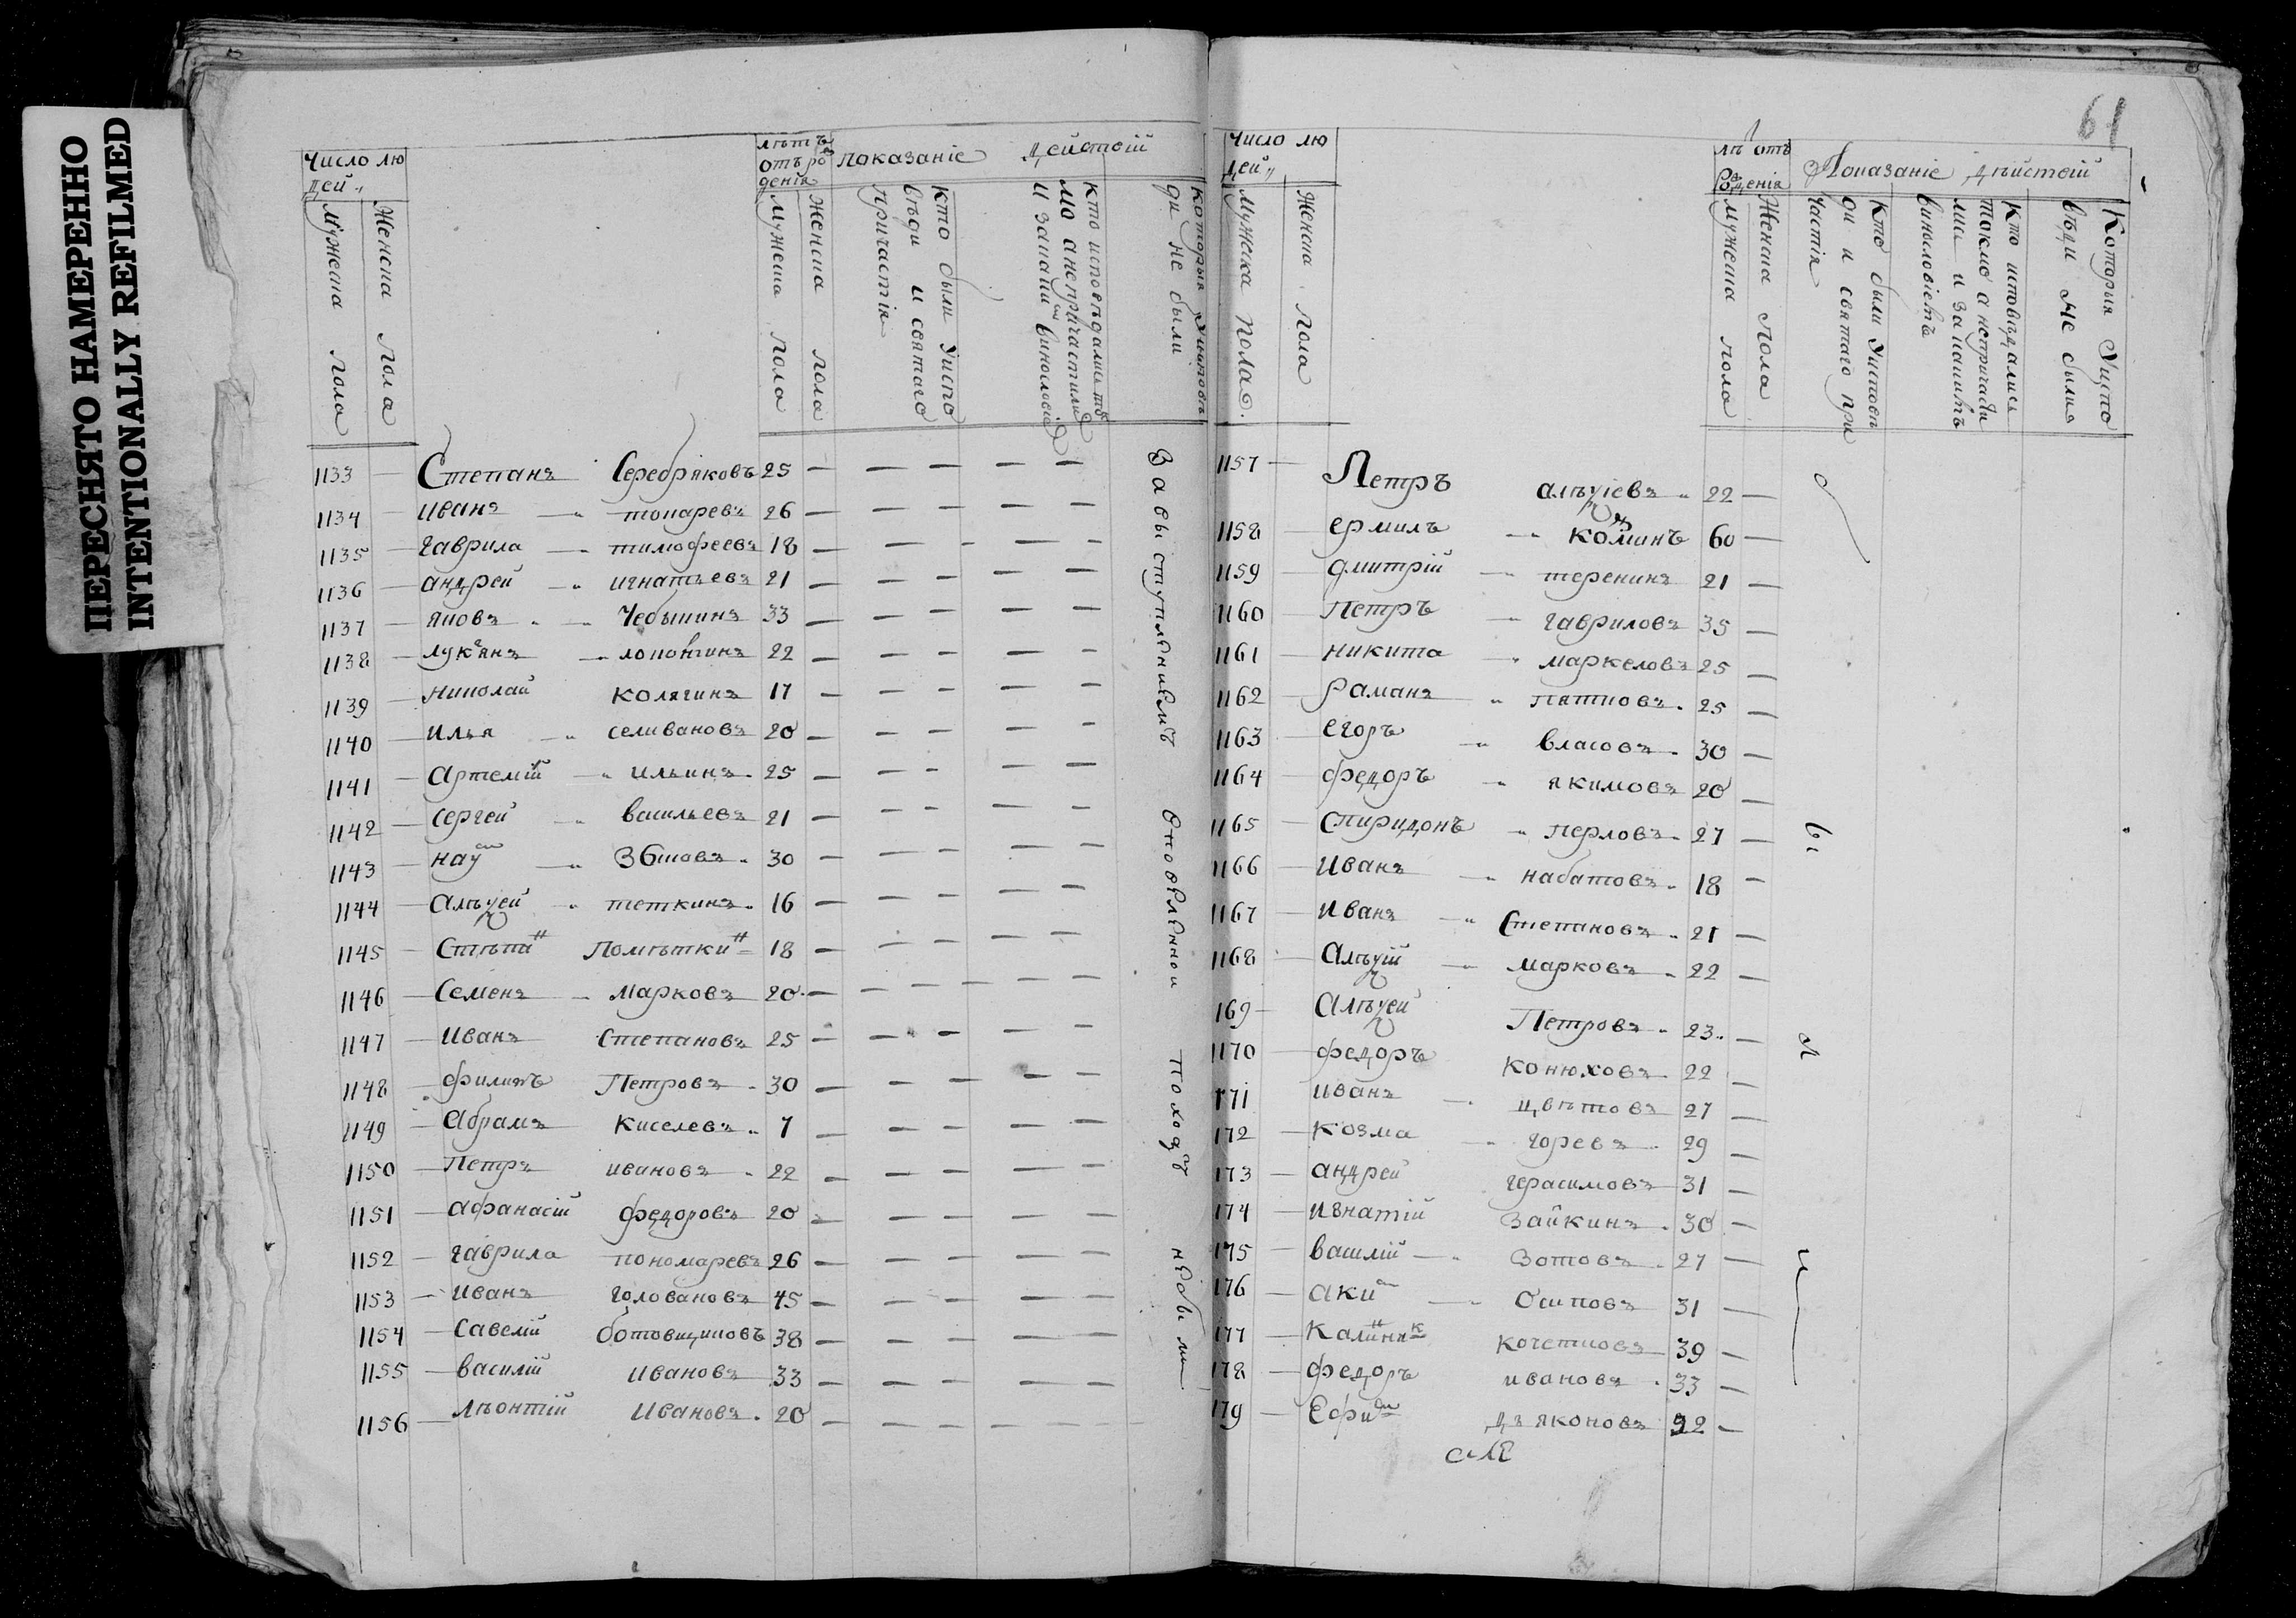 ПЕРЕСНЯТО НАМЕРЕННО
INTENTIONALLY REFILMED
Число лю
дей
мужеска пола
Женска пола
лѣтъ
отъ рож
денія
мужеска пола
Женска пола
показаніе дейстой
кто были уиспо
вѣди и святаго
причастія
кто исповѣдались то
мо а непричастили
и закаким винословіе
которыя уисповѣ
ди не были
1133 — Степанъ Серебряковъ 25
1134 — иванъ — токаревъ 26
1135 — гаврила — тимофеевъ 18
1136 — андрей — игнатьевъ 21
1137 — яковъ — Чебышинъ 33
1138 — лукянъ — 22
1139 — николай колягинъ 17
1140 — илья — селивановъ 20
1141 — артемій — ильинъ 25
1142 — сергей — васильевъ 21
1143 — наумъ — 30
1144 — алѣѯей — теткинъ 16
1145 — Стѣпанъ Помѣткинъ 18
1146 — Семенъ — марковъ 20
1147 — иванъ степановъ 25
1148 — филипъ Петровъ 30
1149 — абрамъ киселевъ 7
1150 — Петръ ивановъ 22
1151 — афанасій федоровъ 20
1152 — гаврила пономаревъ 26
1153 — иванъ головановъ 45
1154 — савелій ботовщиковъ 38
1155 — василій ивановъ 33
1156 — лѣонтій ивановъ 20
За выступлѣниемъ оновѣлѣнной походъ небыли
61
Число лю
дей
мужска пола
Женска пола
лѣ отъ
рожденія
мужеска пола
Женска пола
Показаніе дѣйстой
Кто были уисповѣ
ди и святаго при
частія
Кто исповѣдались
токмо а непричасти
лись и закакимъ
винословіемъ
Которыя уиспо
вѣди не были
1157 — Петръ алѣѯіевъ 22 —
1158 — ермилъ — коминъ 60 —
1159 — дмитрій — теренинъ 21 —
1160 — Петръ — гавриловъ 35 —
1161 — никита — маркеловъ 25 —
1162 — Раманъ — пятновъ 25 —
1163 — егоръ — власовъ 30 —
1164 — федоръ — якимовъ 20 —
1165 — Спиридонъ — перловъ 27 —
1166 — иванъ — набатовъ 18 —
1167 — иванъ — Степановъ 21 —
1168 — алѣѯій — марковъ 22 —
169 — алѣѯей Петровъ 23 —
1170 — федоръ конюховъ 22 —
171 иванъ — цвѣтовъ 27 —
172 — козма — горевъ 29 —
173 — андрей герасимовъ 31 —
174 — игнатій зайкинъ 30 —
175 — василій — зотовъ 27 —
176 — акимъ — осиповъ 31 —
177 — калинникъ кочетковъ 39 —
178 — федоръ ивановъ 33 —
179 — Ефимъ дьяконовъ 32 —